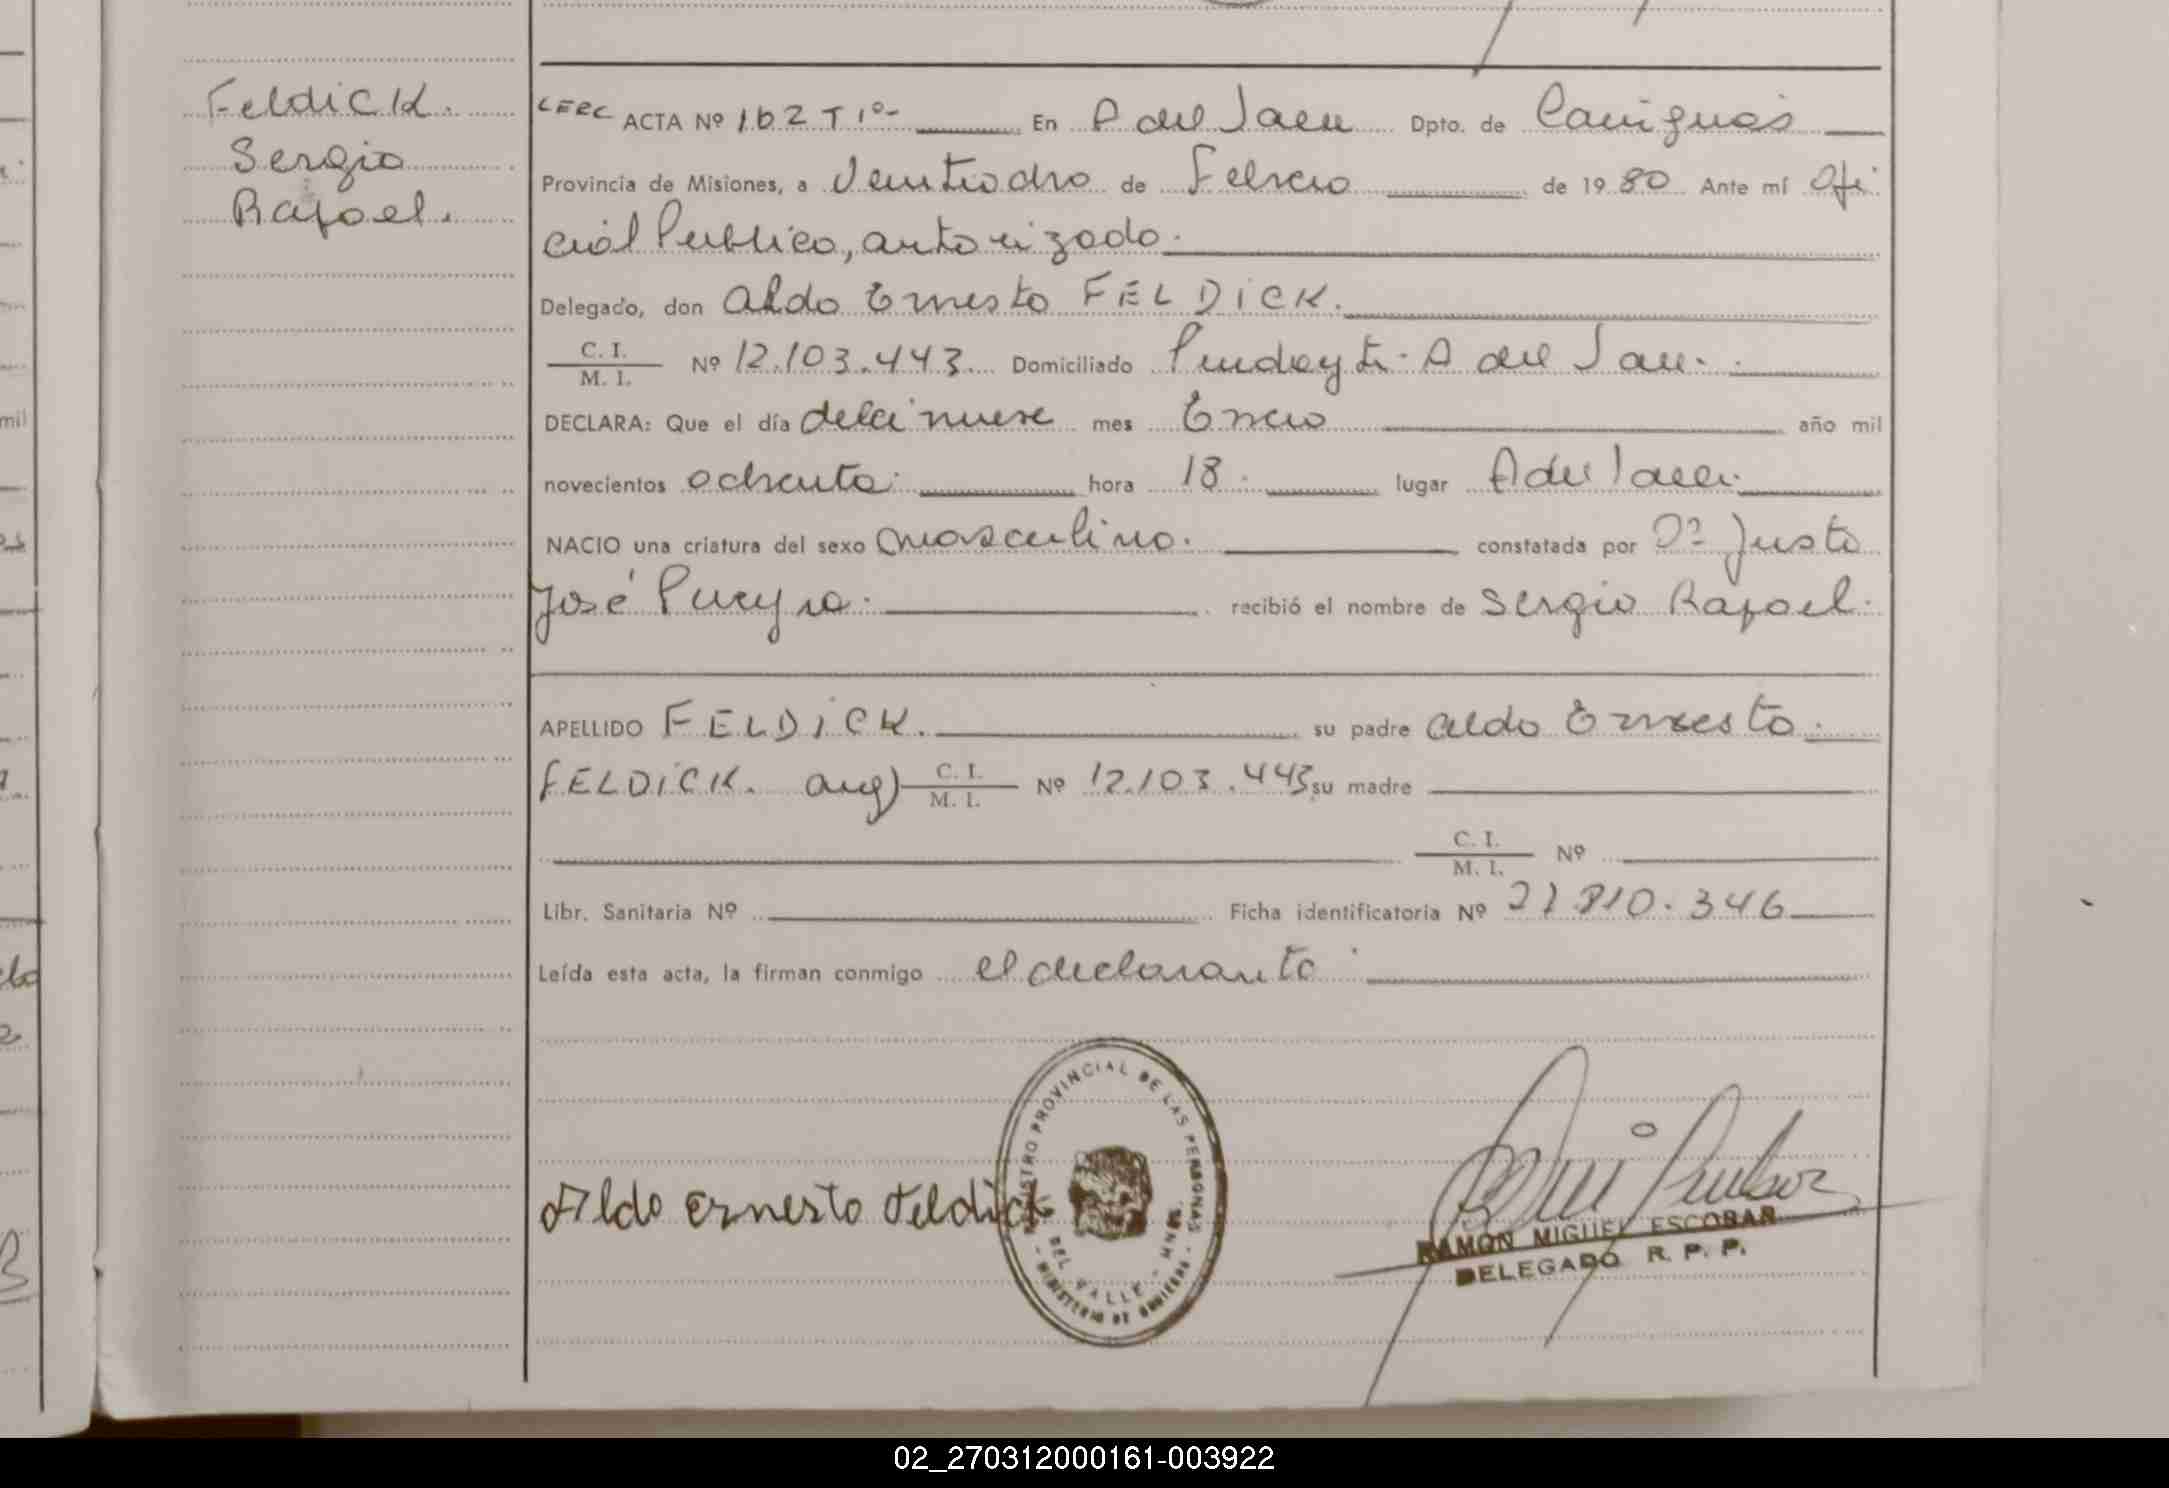 Feldick.
Sergio
Rafael.
LERC ACTA Nº 162 T 1º- En A del Valle Dpto. de Cainguás
Provincia de Misiones, a Veintiocho de Febrero de 1980 Ante mí Ofi
cial Publico, autorizado.
Delegado, don Aldo Ernesto FELDICK.
C. I.
M. I. Nº 12.103.443. Domiciliado Pindayti- A del Valle.
DECLARA: Que el día decinueve mes Enero año mil
novecientos ochenta. hora 18. lugar A del Valle.
NACIO una criatura del sexo masculino. constatada por Dº Justo
José Pueyro. recibió el nombre de Sergio Rafael.
APELLIDO FELDICK. su padre Aldo Ernesto
FELDICK. arg) C. I.
M. I. Nº 12.103.443 su madre
C. I.
M. I. Nº
Libr. Sanitaria Nº Ficha identificatoria Nº 27.810.346
Leída esta acta, la firman conmigo el declarante
REGISTRO PROVINCIAL DE LAS PERSONAS
DEL VALLE - MNES.
- MINISTERIO DE GOBIERNO -
Aldo Ernesto Feldick
RAMON MIGUEL ESCOBAR
DELEGADO R. P. P.
02_270312000161-003922